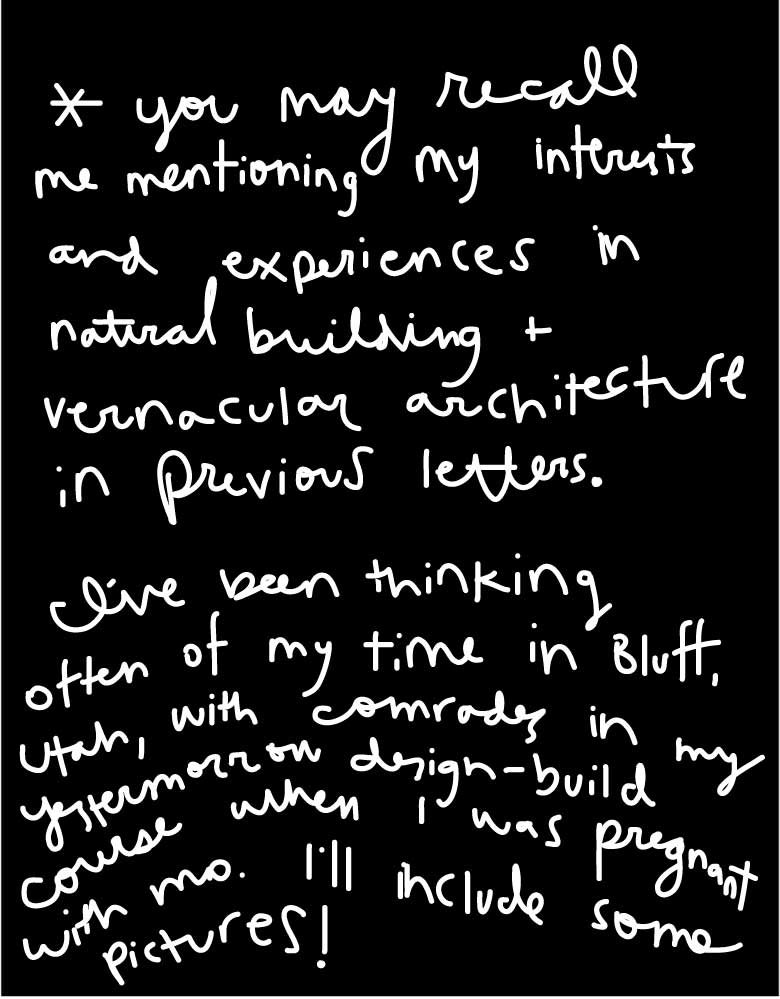 * you may recall
me mentioning my interests
and experiences in
natural building +
vernacular architecture
in previous letters.
I've been thinking
often of my time in Bluff,
Utah, with comrades in my
yestermorrow design-build
course when I was pregnant
with mo. I'll include some
pictures!